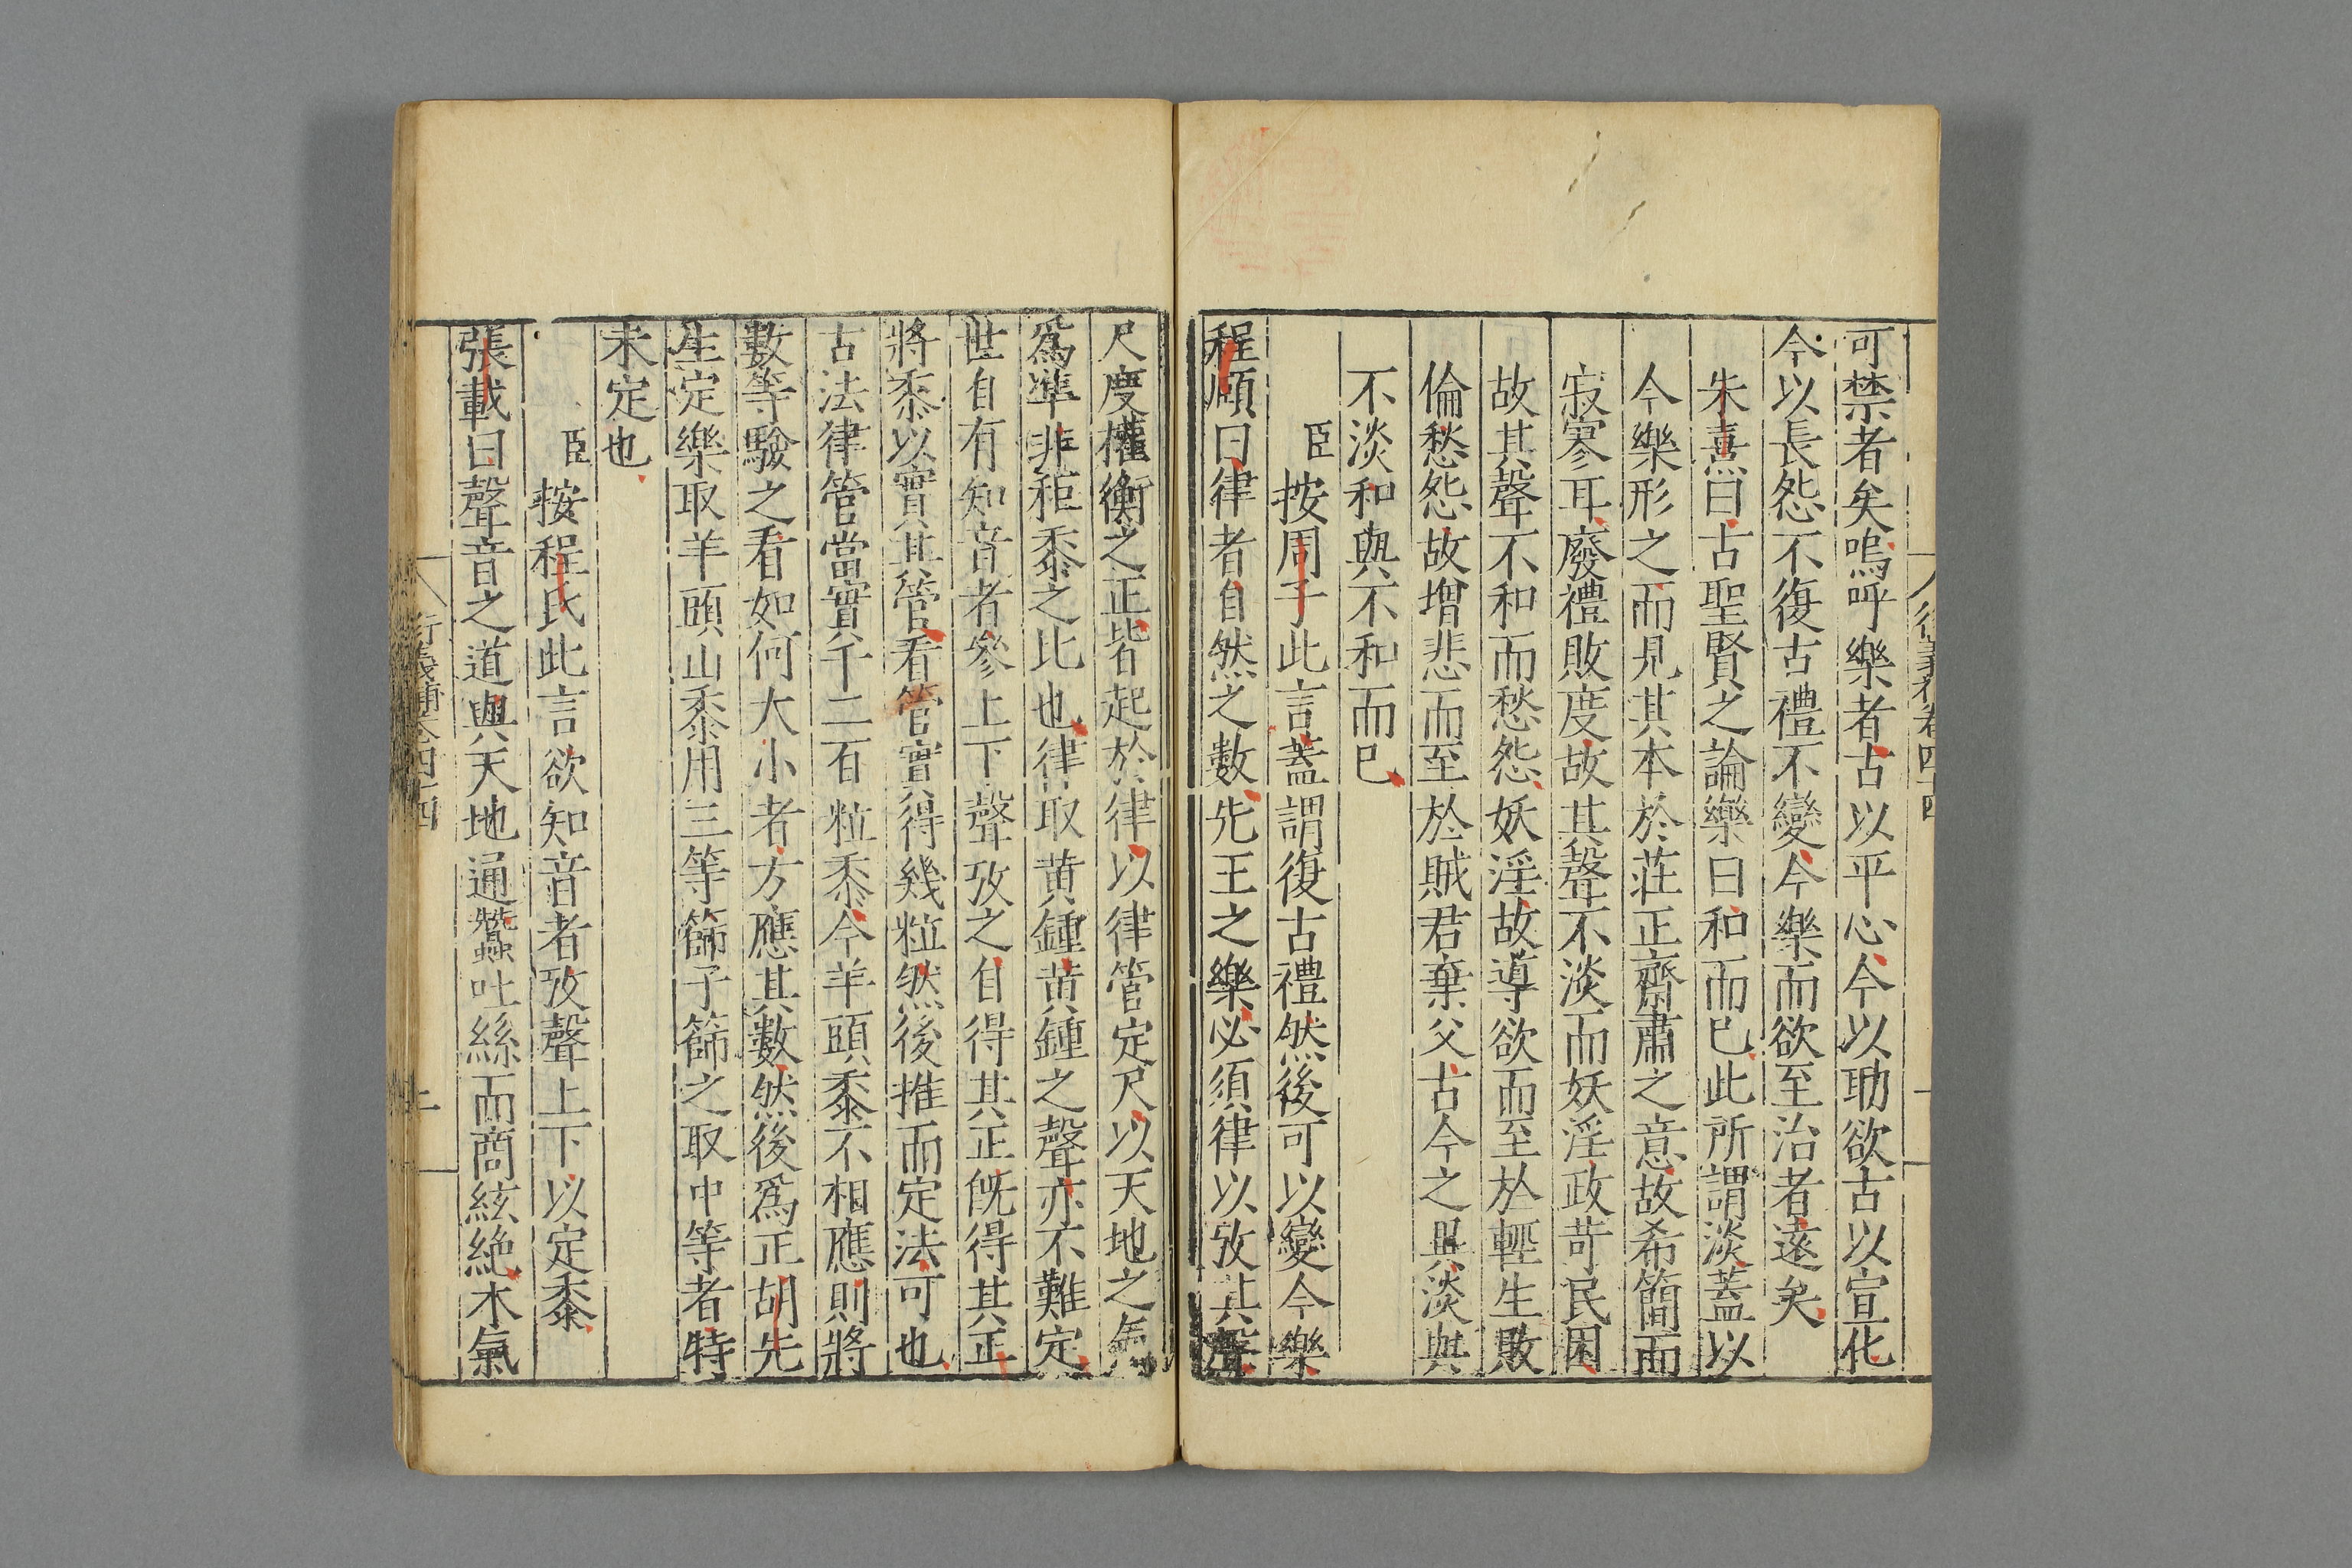 可禁者矣嗚呼樂者古以平心今以助欲古以宣化
今以長怨不復古禮不變今樂而欲至治者遠矣
朱熹曰古聖賢之論樂曰和而已此所謂淡蓋以
今樂形之而見其本於莊正齋肅之意故希簡而
寂寥耳廢禮敗度故其聲不淡而妖淫政苛民困
故其聲不和而愁怨妖淫故導欲而至於輕生敗
倫愁怨故增悲而至於賊君棄父古今之異淡與
不淡和與不和而已
臣按周子此言蓋謂復古禮然後可以變今樂
程頤曰律者自然之數先王之樂必須律以攷其聲
尺度權衡之正皆起於律以律管定尺以天地之氣
爲準非秬黍之比也律取黃鍾黃鍾之聲亦不難定
世自有知音者參上下聲攷之自得其正旣得其正
將黍以實其管看管實得幾粒然後推而定法可也
古法律管當實千二百粒黍今羊頭黍不相應則將
數等驗之看如何大小者方應其數然後爲正胡先
生定樂取羊頭山黍用三等篩子篩之取中等者特
未定也
臣按程氏此言欲知音者攷聲上下以定黍
張載曰聲音之道與天地通蠶吐絲而商絃絶木氣